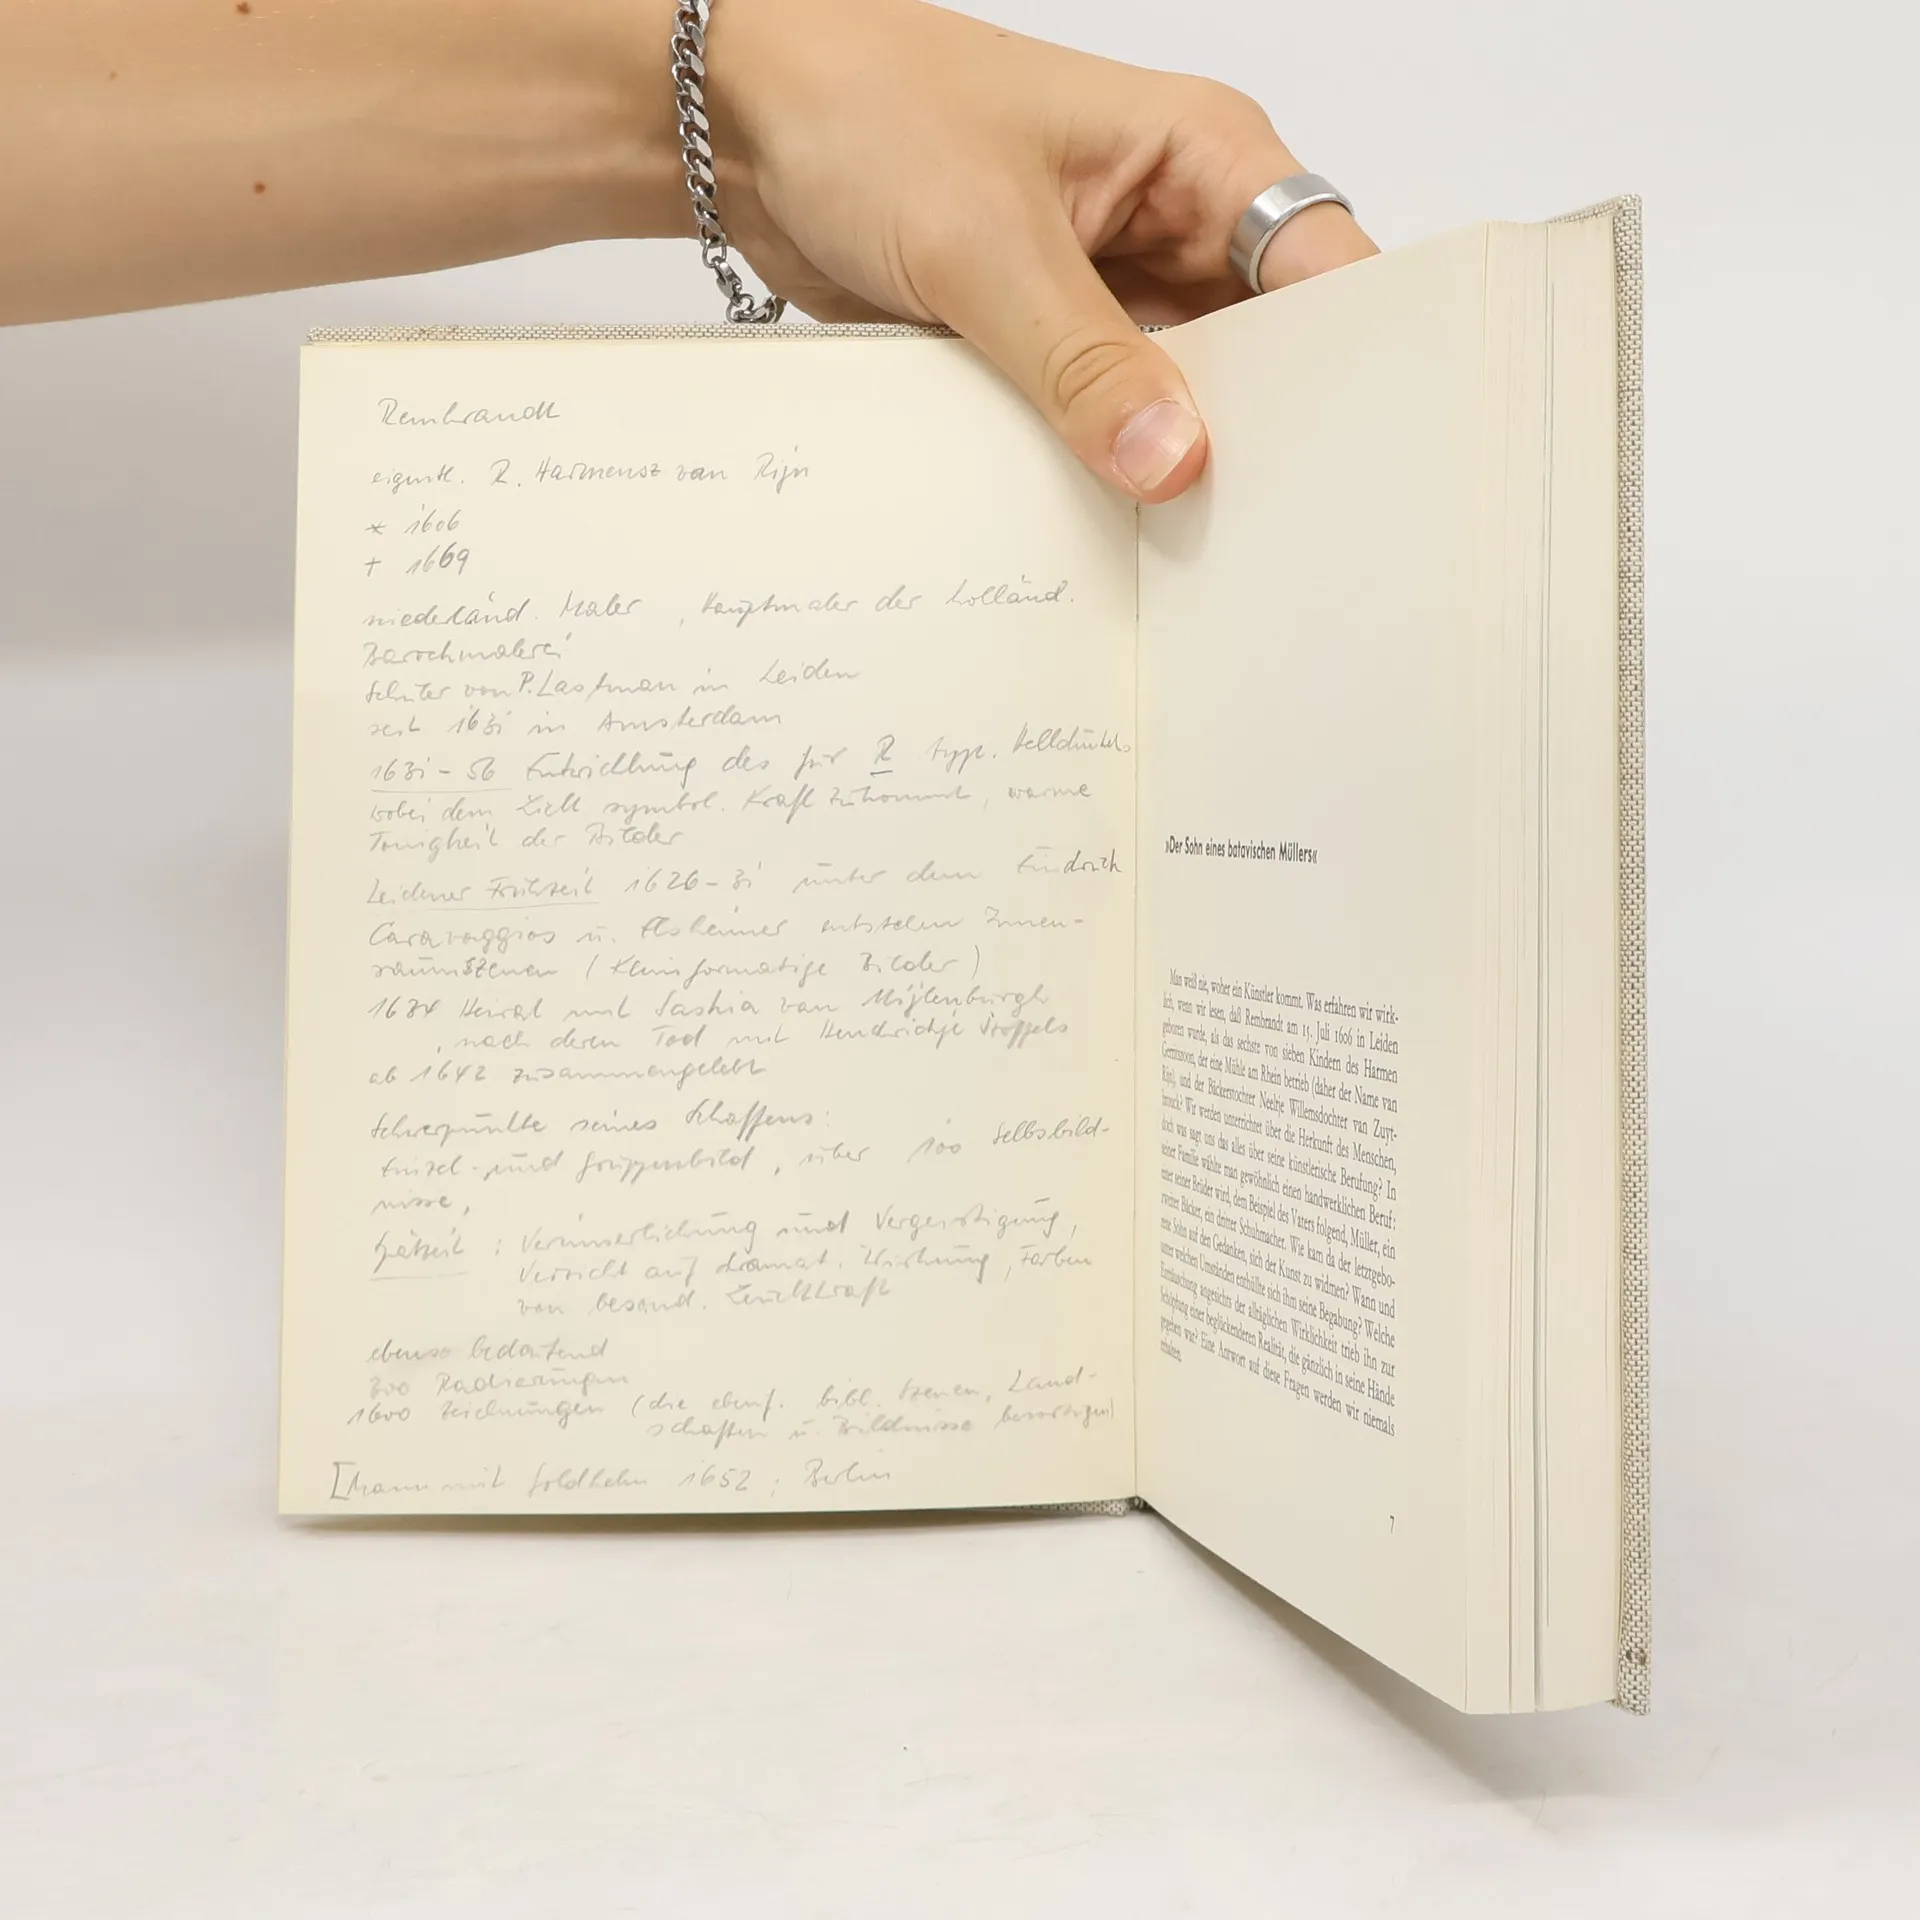 Rembrandt
eigentl. R. Harmensz van Rijn
* 1606
† 1669
niederländ. Maler, Hauptmaler der holländ.
Barockmalerei
Schüler von P. Lastman in Leiden
seit 1631 in Amsterdam
1631-56 Entwicklung des für R typ. Helldunkels
wobei dem Licht symbol. Kraft zukommt, warme
Tonigkeit der Bilder
Leidener Frühzeit 1626-31 unter dem Eindruck
Caravaggios u. Elsheimer entstehen Innen-
raumszenen (Kleinformatige Bilder)
1634 Heirat mit Saskia van Uijlenburgh
, nach deren Tod mit Hendrickje Stoffels
ab 1642 zusammengelebt
Schwerpunkte seines Schaffens:
Einzel- und Gruppenbild, über 100 Selbsbild-
nisse,
Spätzeit : Verinnerlichung und Vergeistigung,
Verzicht auf dramat. Wirkung, Farben
von besond. Leuchtkraft
ebenso bedeutend
300 Radierungen
1600 Zeichnungen (die ebenf. bibl. Szenen, Land-
schaften u. Bildnisse bevorzugen)
[Mann mit Goldhelm 1652 ; Berlin
»Der Sohn eines batavischen Müllers«
Man weiß nie, woher ein Künstler kommt. Was erfahren wir wirk-
lich, wenn wir lesen, daß Rembrandt am 15. Juli 1606 in Leiden
geboren wurde, als das sechste von sieben Kindern des Harmen
Gerritszoon, der eine Mühle am Rhein betrieb (daher der Name van
Rijn), und der Bäckerstochter Neeltje Willemsdochter van Zuyt-
brouck? Wir werden unterrichtet über die Herkunft des Menschen,
doch was sagt uns das alles über seine künstlerische Berufung? In
seiner Familie wählte man gewöhnlich einen handwerklichen Beruf:
einer seiner Brüder wird, dem Beispiel des Vaters folgend, Müller, ein
zweiter Bäcker, ein dritter Schuhmacher. Wie kam da der letztgebo-
rene Sohn auf den Gedanken, sich der Kunst zu widmen? Wann und
unter welchen Umständen enthüllte sich ihm seine Begabung? Welche
Enttäuschung angesichts der alltäglichen Wirklichkeit trieb ihn zur
Schöpfung einer beglückenderen Realität, die gänzlich in seine Hände
gegeben war? Eine Antwort auf diese Fragen werden wir niemals
erhalten.
7